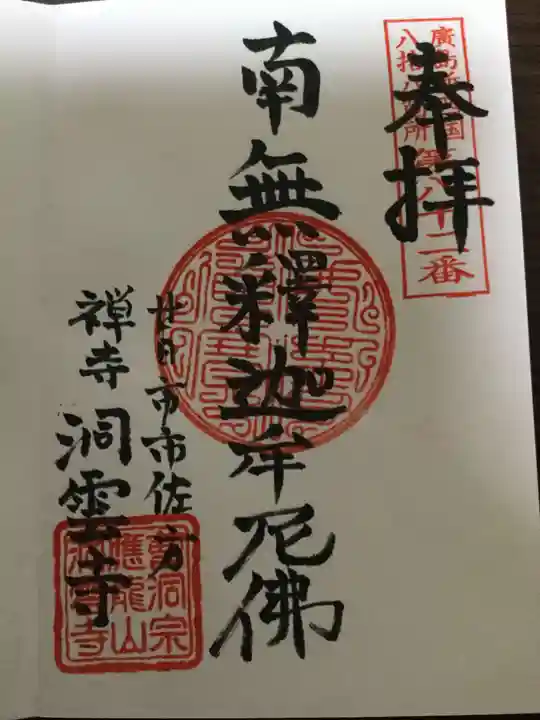 奉拝
廣島新四国
八拾八ヶ所
第八十二番
南無釋迦牟尼佛
廿日市市佐方
禅寺 洞雲寺
曹洞宗
應龍山
洞雲寺